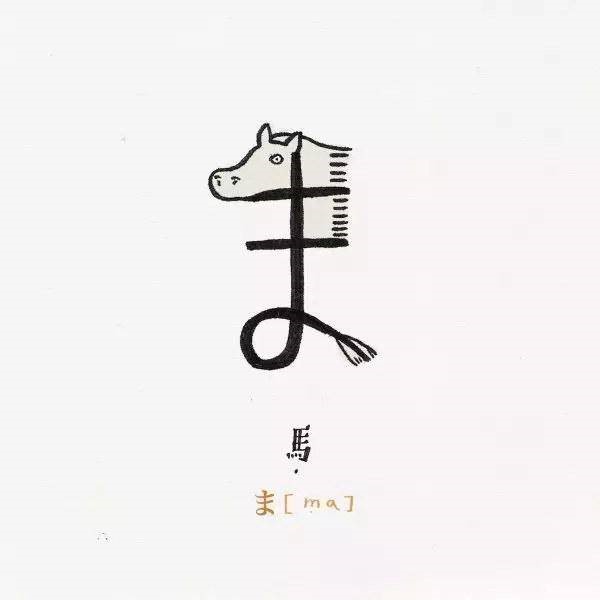 ま
馬
ま[ma]